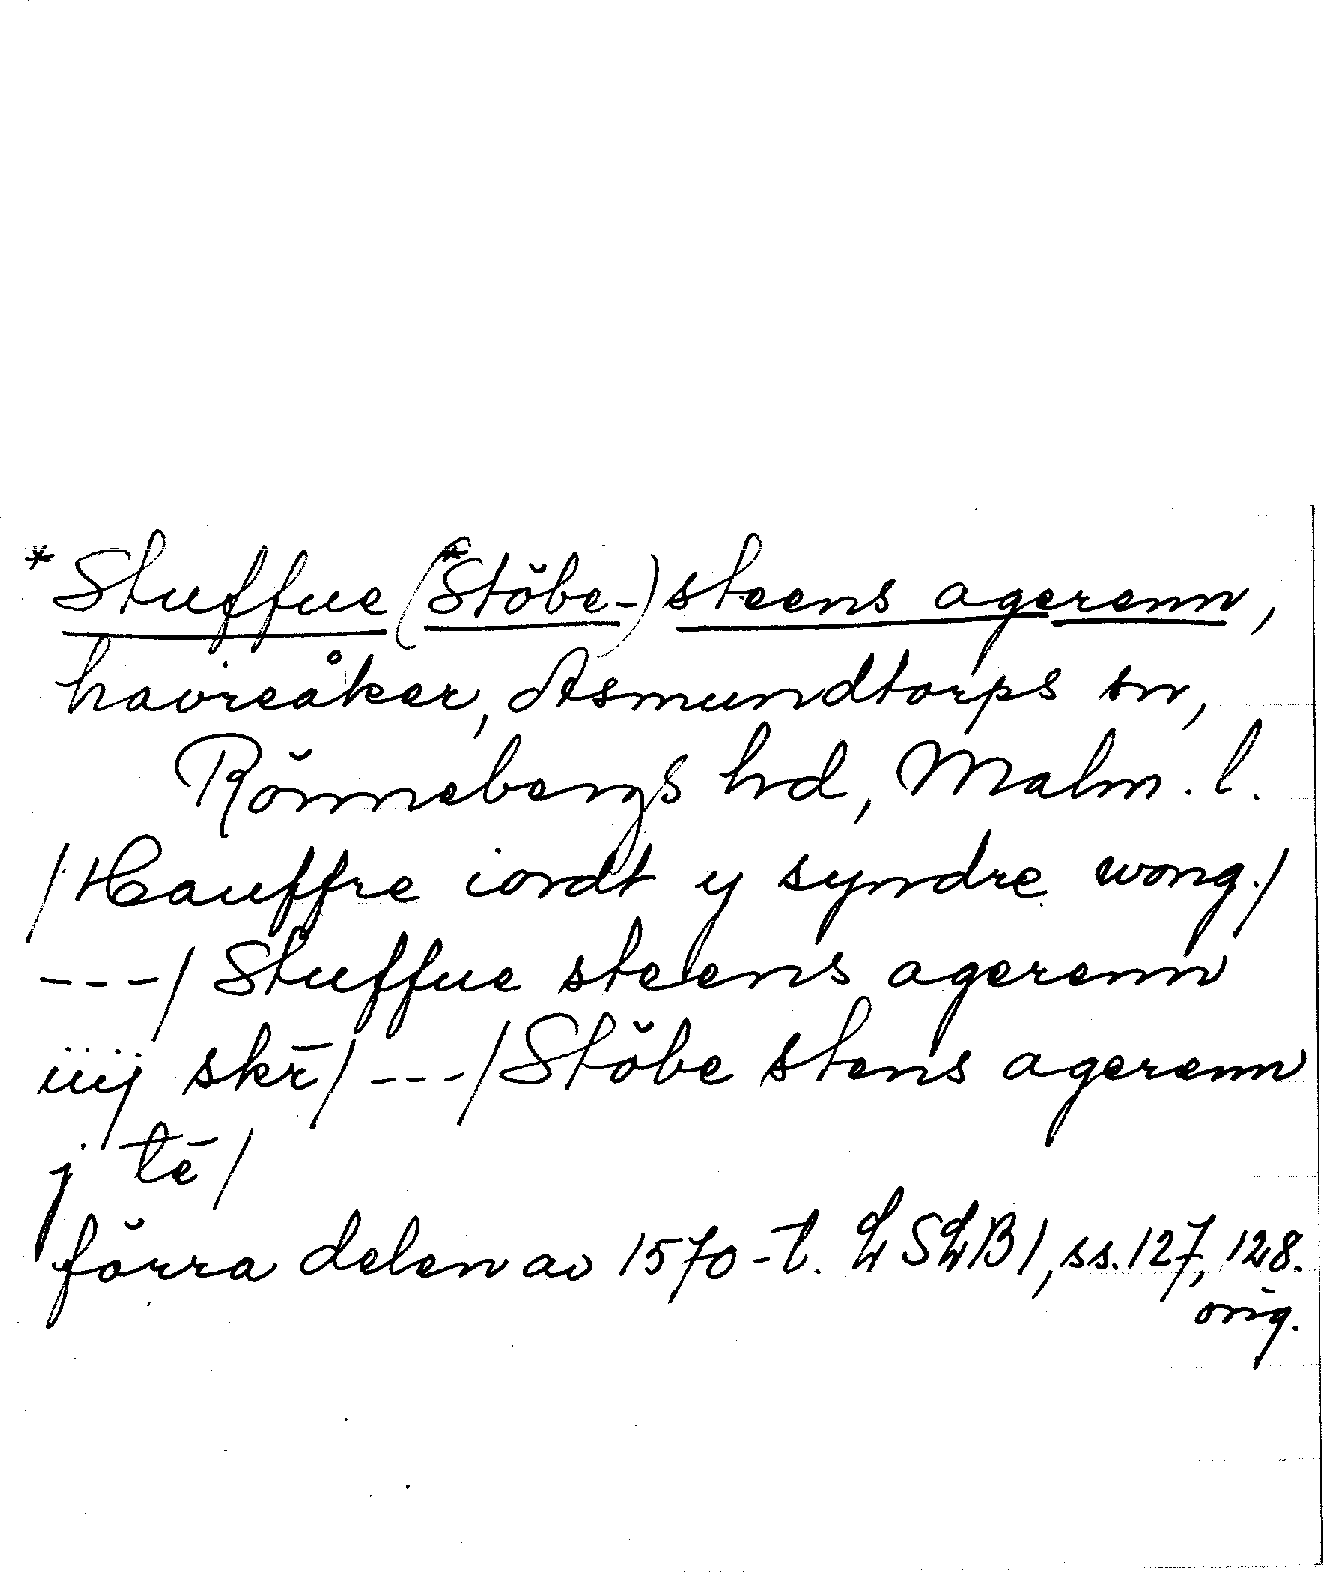 *Stuffue (*Stöbe-) steens agerenn,
havreåker, Asmundtorps sn,
Rönnebergs hrd, Malm. l.
/Hauffre iordt y syndre wong./
---/Stuffue steens agerenn
iiij skr̄/---/Stöbe stens agerenn
j tē/
förra delen av 1570-t. LSLB1, ss. 127, 128.
orig.